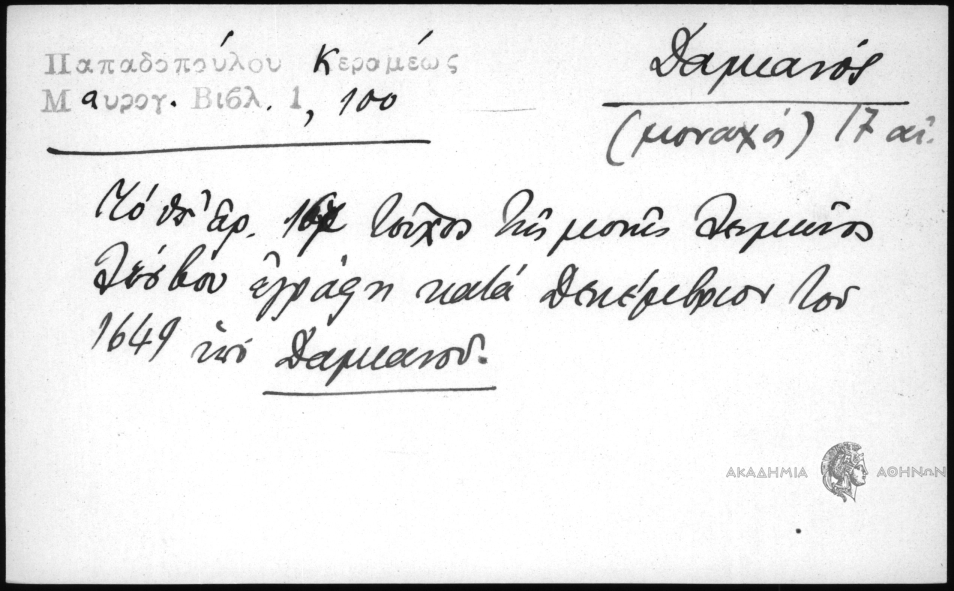 Παπαδοπούλου Κεραμέως
Μαυρογ. Βιβλ. 1, 100
Δαμιανός
(μοναχός) 17 αἰ.
Τό ὑπ' ἀρ. τεῦχος τῆς μονῆς Λειμῶνος
Λέσβου ἐγράφη κατά Δεκέμβριον τοῦ
1649 ὑπό Δαμιανοῦ.
ΑΚΑΔΗΜΙΑ ΑΘΗΝΩΝ